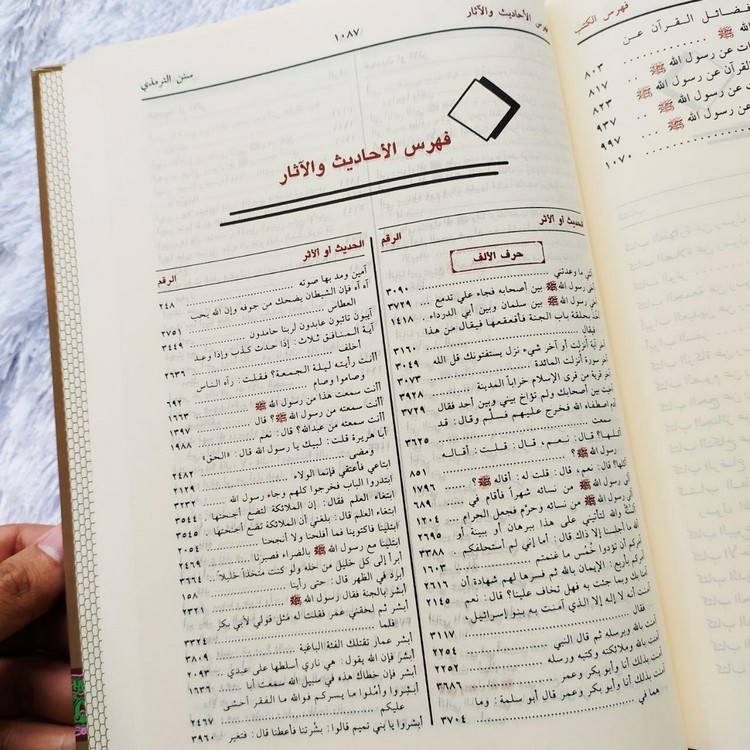 فهرس الأحاديث والآثار
١٠٨٧
سنن الترمذي
فهرس الأحاديث والآثار
الحديث أو الأثر
الرقم
حرف الألف
آخى رسول الله ﷺ بين أصحابه فجاء علي تدمع ... ٣٧٢٩
آخى رسول الله ﷺ بين سلمان وبين أبي الدرداء ١٤١٨
فيقال ٣١٦٠
آخر آية أنزلت أو آخر شيء نزل يستفتونك قل الله ٣٠٤٩
آخر سورة أنزلت المائدة ٣٠٧٣
آخر قرية من قرى الإسلام خراباً المدينة ٣٩٢٨
آخيت بين أصحابك ولم تؤاخ بيني وبين أحد فقال ٣٧٢٩
سمعت ٣٦٢٥
رسول الله ﷺ؟ ٨٥١
قال: نعم، قال: قلت له: أقاله ﷺ؟ ١٧٩٦
آلى رسول الله ﷺ من نسائه شهراً فأقام في ... ٦٨٩
آلى رسول الله ﷺ من نسائه وحرّم فجعل الحرام ... ١٢٠٤
آلله ما أجلسنا إلا ذاك قال: أما إني لم أستحلفكم .. ٣٣٨٨
آمركم أن تؤدوا خُمْس ما غنمتم ١٦٠٣
آمركم بأربع: الإيمان بالله ثم فسرها لهم شهادة أن ٢٦١٦
آمنا بك وبما جئت به فهل تخاف علينا؟ قال: نعم ٢١٤٥
آمنت أنه لا إله إلا الذي آمنت به بنو إسرائيل،
فقال ٣١١٧
آمنت بالله وبرسله ثم قال النبي ٢٢٥٤
آمنت بالله وملائكته وكتبه ورسله ٢٢٥٢
آمنت بذلك أنا وأبو بكر وعمر ٣٦٨٦
آمنت بذلك أنا وأبو بكر وعمر قال أبو سلمة: وما
هما في ٣٧٠٤
الحديث أو الأثر
الرقم
آمين ومد بها صوته ٢٤٨
آه آه فإن الشيطان يضحك من جوفه وإن الله يحب
العطاس ٢٧٥١
آيبون تائبون عابدون لربنا حامدون ٣٤٤٩
آية المنافق ثلاث: إذا حدث كذب وإذا وعد
أخلف ٢٦٣٦
أأنت رأيته ليلة الجمعة؟ فقلت: رآه الناس
وصاموا وصام ٦٩٢
أأنت سمعت هذا من رسول الله ﷺ ١٦٦٣
أأنت سمعته من رسول الله ﷺ؟ قال ١٣٩٧
أأنت سمعته من عبدالله؟ قال: نعم ١٩٨٨
أبا هريرة قلت: لبيك يا رسول الله قال: «الحق»
ومضى ٢٤٨٢
ابتاعي فأعتقي فإنما الولاء ٢١٢٩
ابتدروا الباب فخرجوا كلهم وجاء رسول الله
ابتغاء العلم فقال: إن الملائكة تضع أجنحتها . ٣٥٤٤
ابتغاء العلم قال: بلغني أن الملائكة تضع أجنحتها . ٣٥٤٥
ابتلينا فاكتوينا فما أفلحنا ولا أنجحنا ٢٠٥٤
ابتلينا مع رسول الله ﷺ بالضراء فصبرنا ٢٤٦٩
أبرأ إلى كل خليل من خله ولو كنت متخذاً خليلاً . ٣٦٦٤
أبرد في الظهر قال: حتى رأينا ١٥٨
أبشر بالجنة فقال رسول الله ﷺ ٢٣٢١
أبشر ثم لحقني عمر فقلت له مثل قولي لأبي بكر
فلما ٣٣٢٤
أبشر عمار تقتلك الفئة الباغية ٣٨٠٩
أبشر فإن الله يقول: هي ناري أسلطها على عبدي .. ٢٠٩٣
أبشر فإن خطاك هذه في سبيل الله سمعت أبا ١٦٣٦
أبشروا وأملوا ما يسركم فوالله ما الفقر أخشى
عليكم ٢٤٦٧
أبشروا يا بني تميم قالوا: بشرتنا فأعطنا قال: فتغير ٣٩٦٠
فهرس الكتب
٨٠٣
٨١٧
٨٢٣
٩٣٧
٩٩٧
١٠٧٠